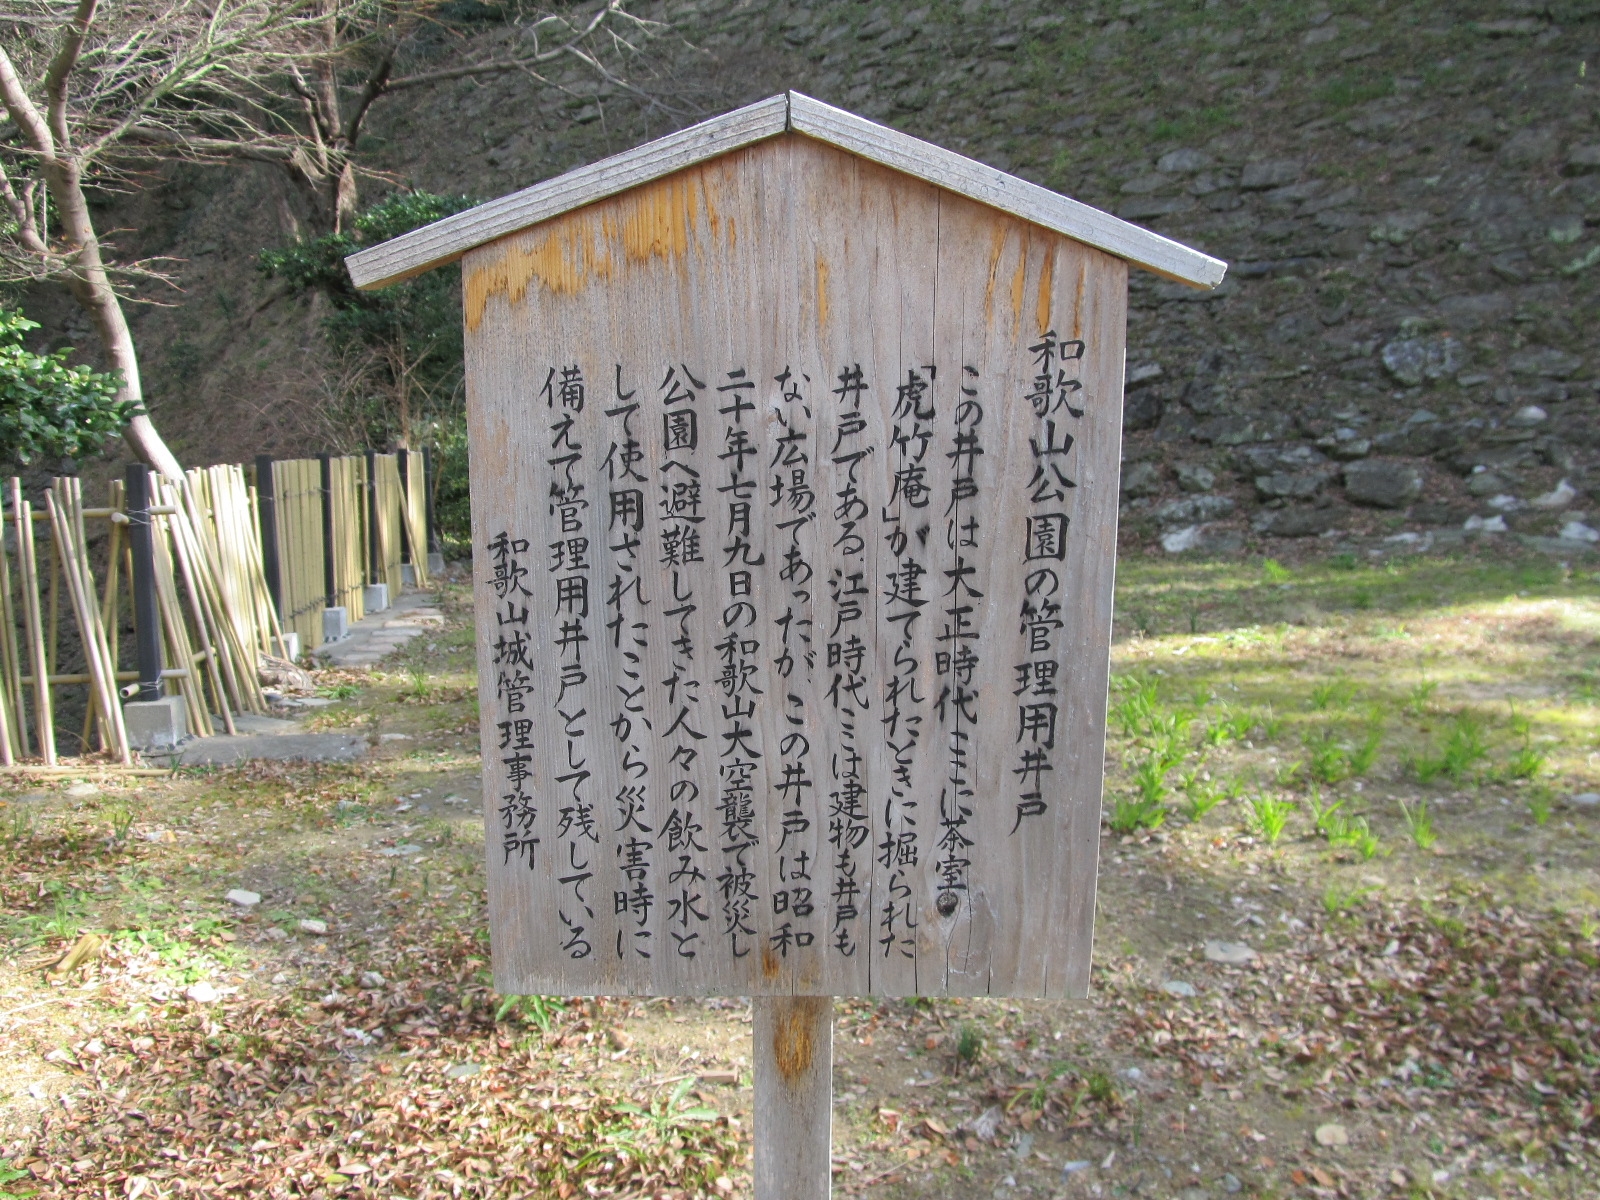 和歌山公園の管理用井戸
この井戸は大正時代ここに茶室
「虎竹庵」が建てられたときに掘られた
井戸である。江戸時代ここは建物も井戸も
ない広場であったが、この井戸は昭和
二十年七月九日の和歌山大空襲で被災し
公園へ避難してきた人々の飲み水と
して使用されたことから災害時に
備えて管理用井戸として残している
和歌山城管理事務所